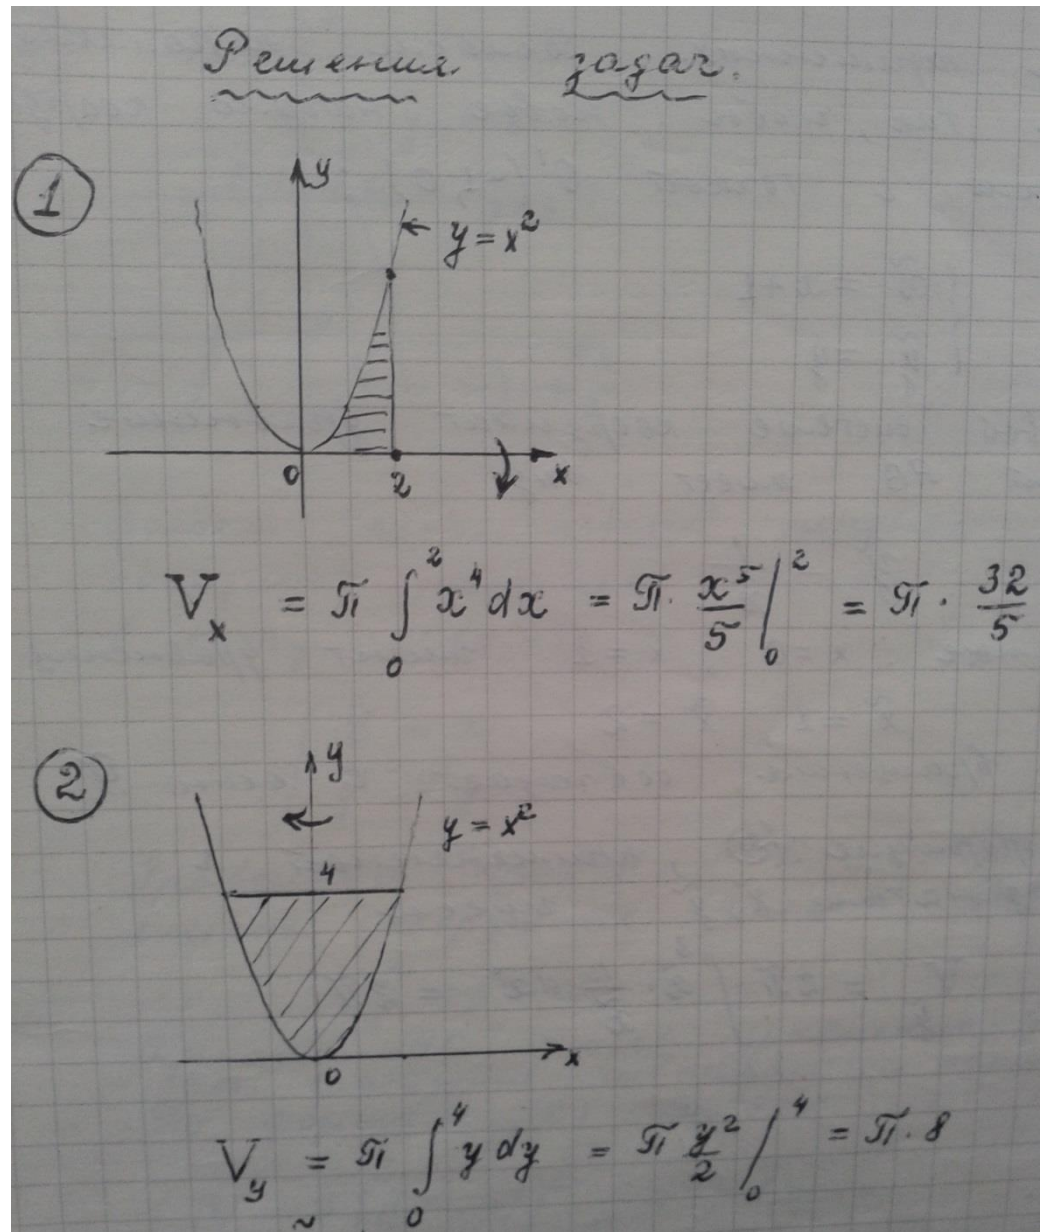 Решения задач.
1
y
y = x²
0
2
x
V_x = π ∫₀² x⁴ dx = π · x⁵/5 |₀² = π · 32/5
2
y
y = x²
4
x
0
V_y = π ∫₀⁴ y dy = π y²/2 |₀⁴ = π · 8